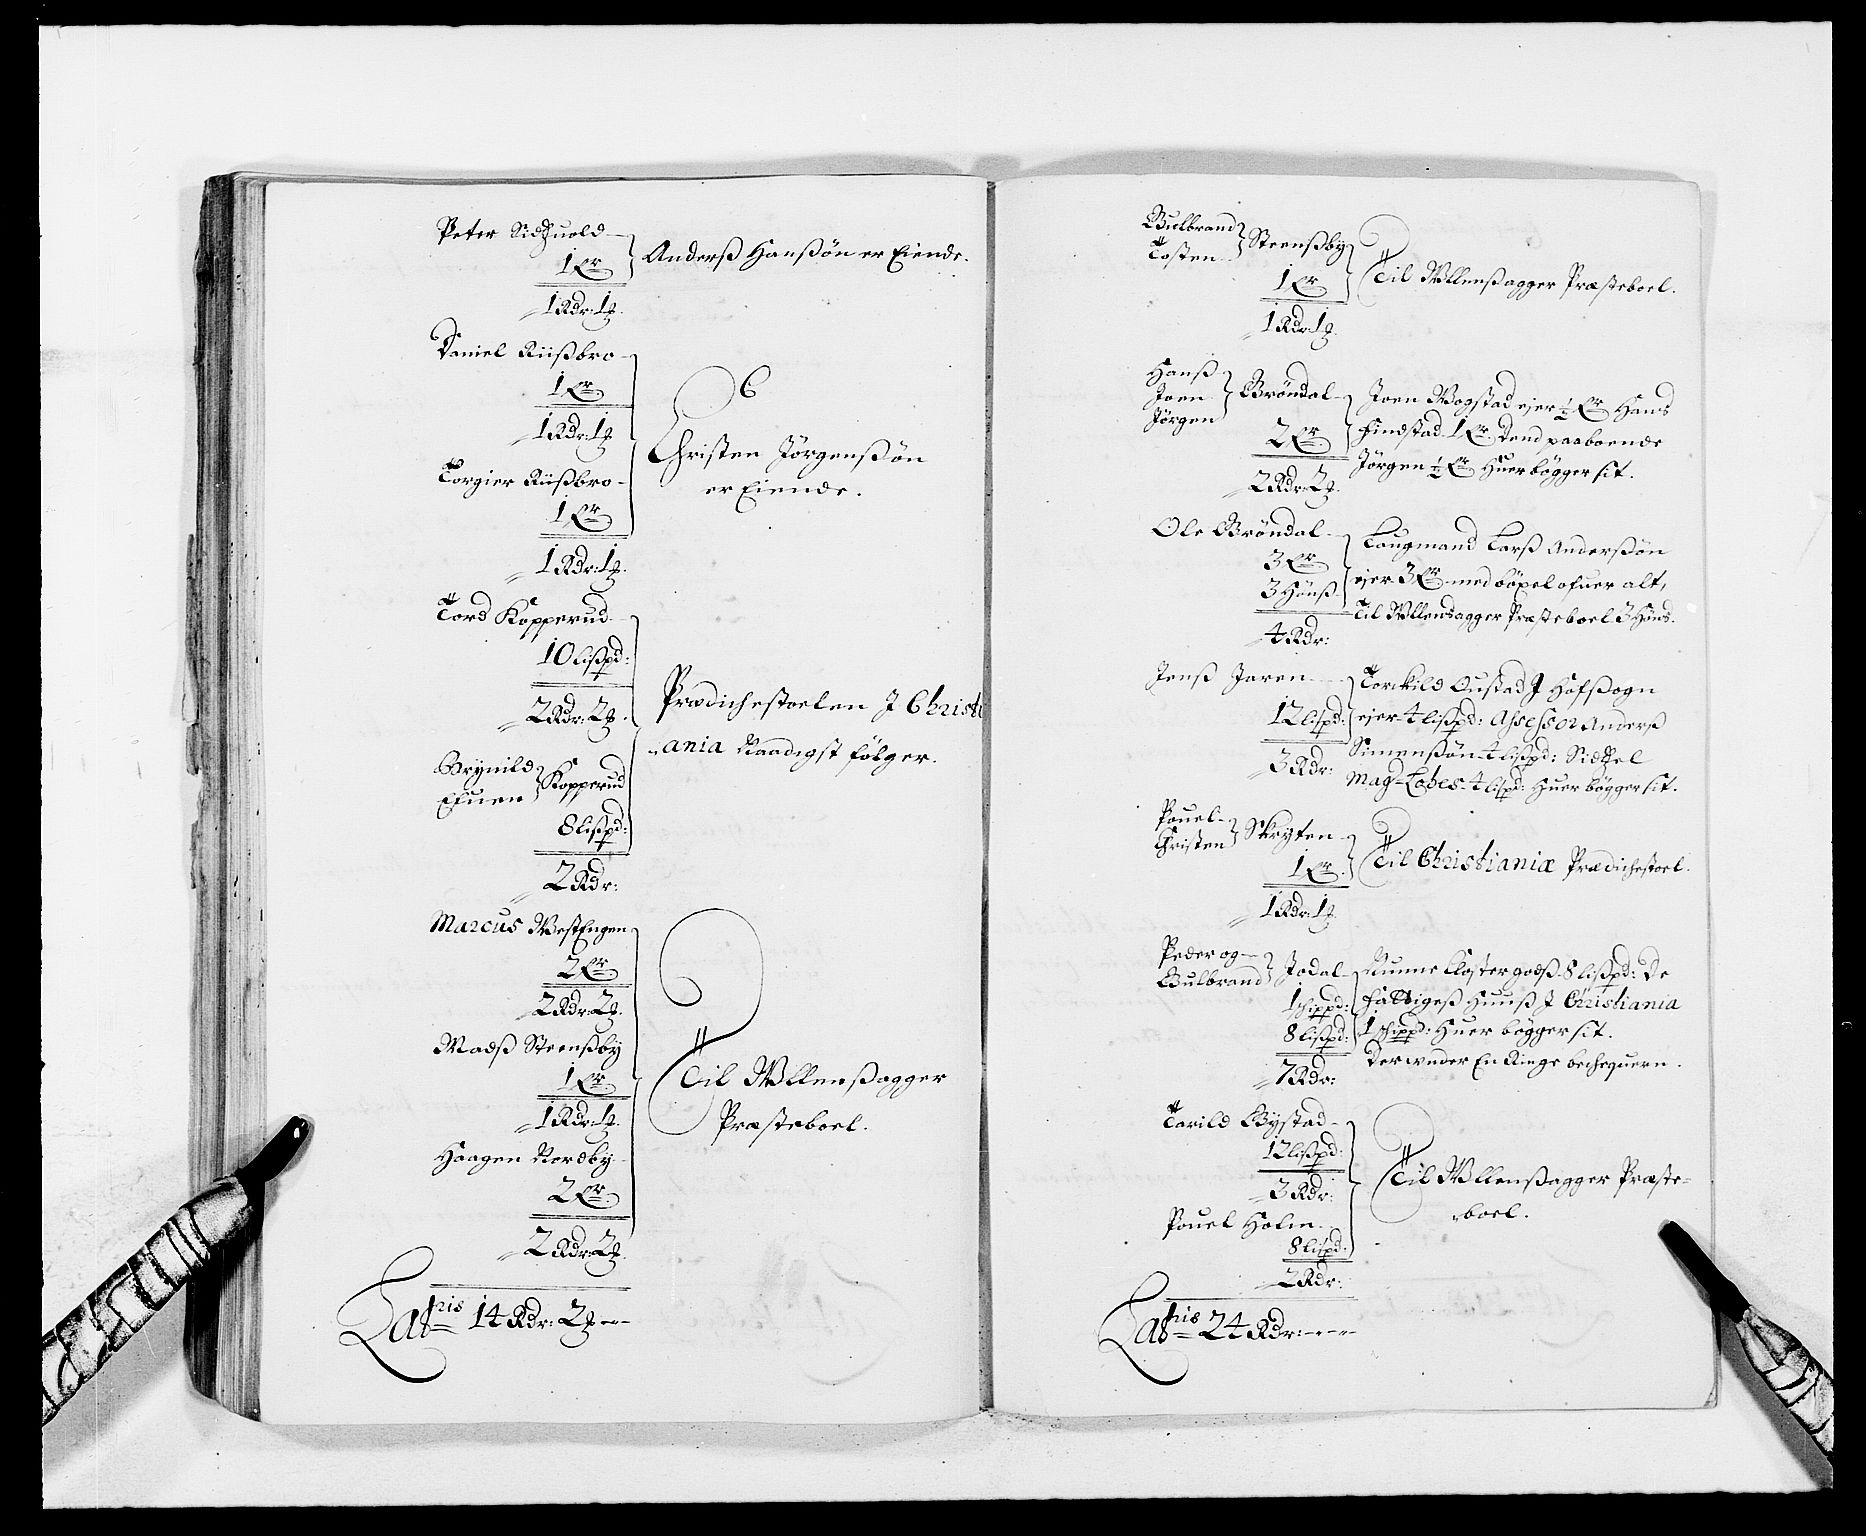 Peter Sidzuold
1 Er
1 Rdr: 1
Anderß Hanßøn er Eiende.
Daniel Riißbro
1 Er
1 Rdr: 1
Torgier Riißbro
1 Er
1 Rdr: 1
Christen Jørgenßøn
er Eiende.
Tord Kopperud
10 lißpd:
2 Rdr: 2
Brynild
Efuen
Kopperud
8 lißpd:
2 Rdr:
Prædichestoelen J Christi
ania Naadigst følger.
Marcus WestEngen
2 Er
2 Rdr: 2
Madß Steenßby
1 Er
1 Rdr: 1
Haagen Nordby
2 Er
2 Rdr: 2
Til Wllenßagger
Præsteboel.
Latris 14 Rdr: 2
Gulbrand
Tosten
Steenßby
1 Er
1 Rdr: 1
Til Wllenßagger Præsteboel.
Hanß
Joen
Jørgen
Brøndal
2 Er
2 Rdr: 2
Joen Wogstad ejer ½ Er Hans
Findstad 1 Er. Dend paaboende
Jørgen ½ Er Huer bøgger sit.
Ole Brøndal
3 Er
3 Hønß
4 Rdr:
Laugmand Larß Anderßøn
ejer 3 Er med bøxel ofuer alt,
Til Wllensagger Præsteboel 3 Hønß.
Jenß Jaren
12 lispd:
3 Rdr:
Torckild Oustad J Hofßogn
ejer 4 lißpd: Assessor Anderß
Simenßøn 4 lißpd: Sidzel
Mag-Lobes 4 lispd: Huer bøgger sit.
Pouel
Christen
Skryten
1 Er
1 Rdr: 1
Til Christianiæ Prædichestoel.
Peder og
Gulbrand
Jodal
1 schippd:
8 lißpd:
7 Rdr:
Nunne Closter godß 8 lißpd: De
Fattigeß Huuß J Christiania
1 schippd: Huer bøgger sit.
Der wnder En Ringe bechequern.
Tarild Bystad
12 lißpd:
3 Rdr:
Pouel Holm
8 lispd:
2 Rdr:
Til Wllenßagger Præste-
boel.
Latris 24 Rdr: